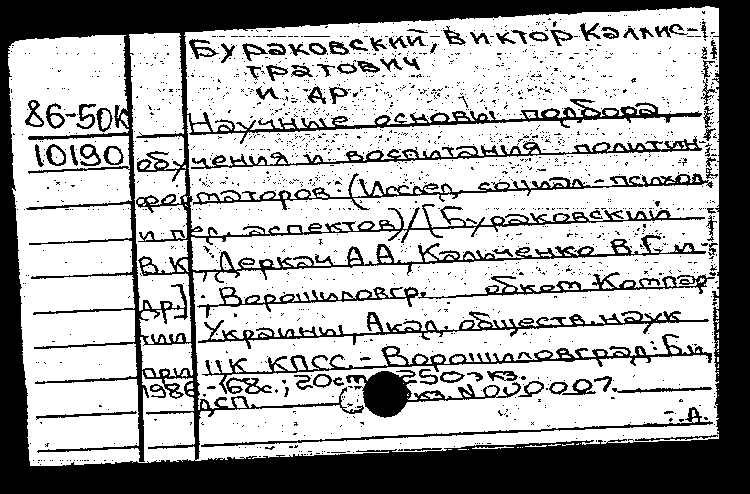 Бураковский, Виктор Каллис-
тратович
и др.
86-50к Научные основы подбора,
10190 обучения и воспитания политин-
форматоров: (Исслед. социал.-психол.
и пед. аспектов)/[Бураковский
В.К., Деркач А.А., Кальченко В.Г. и
др.]; Ворошиловгр. обком Компар-
тии Украины, Акад. обществ. наук
при ЦК КПСС. - Ворошиловград: Б.и.,
1986 - 168с.; 20см 250 экз.
ДСП. экз. N 000007.
А.